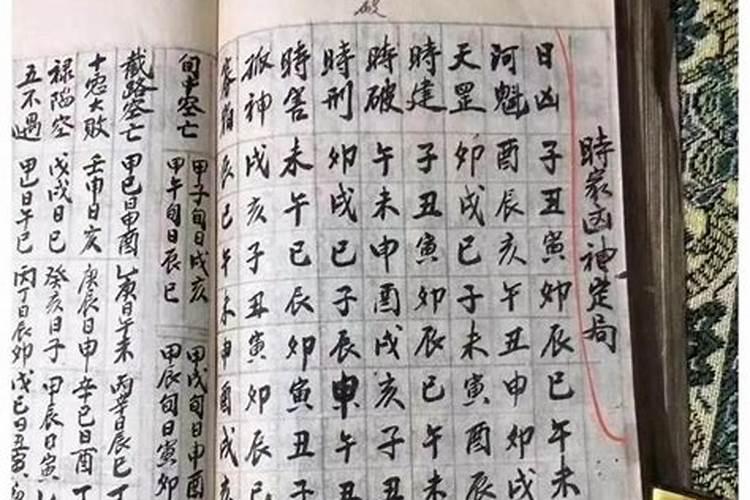 時家凶神定局
日凶 子丑寅卯辰巳午未
河魁 酉辰亥午丑申卯戌
天罡 卯戌巳子未寅酉辰
時建 子丑寅卯辰巳午未
時破 午未申酉戌亥子丑
時刑 卯戌巳子辰申午丑
時害 未午巳辰卯寅丑子
孤神 戌亥子丑寅卯辰巳
寡宿 辰巳午未申酉戌亥
旬中空亡 甲子旬日戌亥 甲戌旬日申酉
甲午旬日辰巳 甲辰旬日寅卯
截路空亡 甲巳日申酉 乙庚日午未 丙辛日辰巳 丁
十惡大敗 壬申日亥 庚辰日申 辛巳日酉 丁
祿陷空 戊戌日巳 癸亥日子 甲辰日寅
五不遇 甲乙日午巳 丙丁日辰卯 戊巳日丑寅